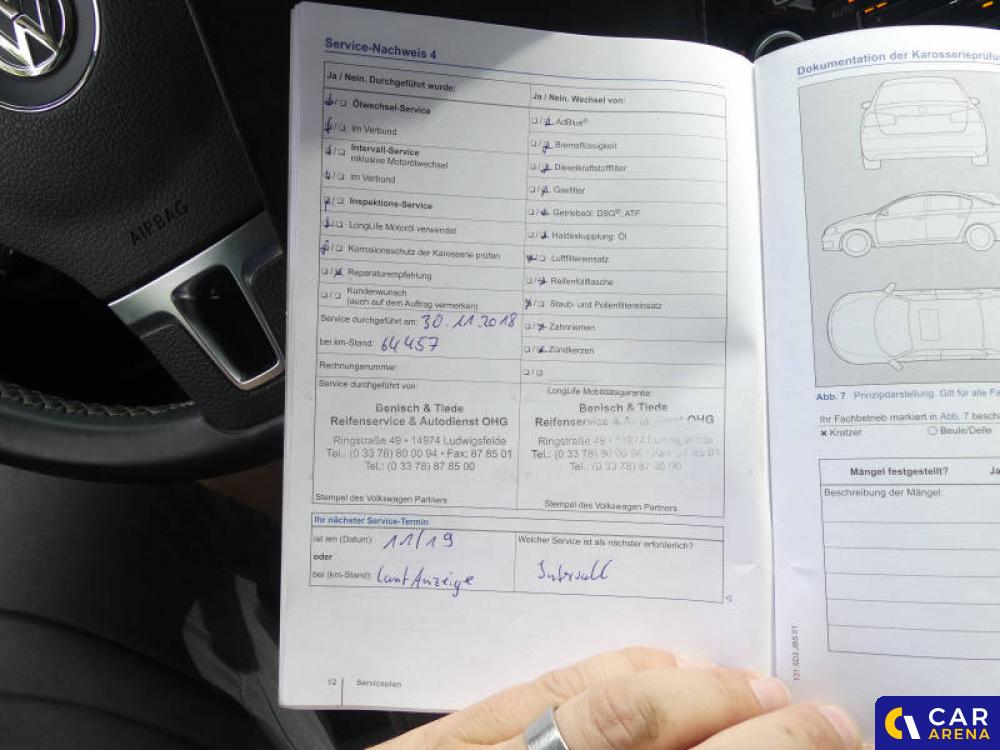 AIRBAG
Service-Nachweis 4
Ja / Nein. Durchgeführt wurde:
Ölwechsel-Service
im Verbund
Intervall-Service
inklusive Motorölwechsel
im Verbund
Inspektions-Service
LongLife Motoröl verwendet
Korrosionsschutz der Karosserie prüfen
Reparaturempfehlung
Kundenwunsch
(auch auf dem Auftrag vermerken)
Service durchgeführt am: 30.11.2018
bei km-Stand: 64457
Rechnungsnummer:
Service durchgeführt von:
Benisch & Tiede
Reifenservice & Autodienst OHG
Ringstraße 49 • 14974 Ludwigsfelde
Tel.: (0 33 78) 80 00 94 • Fax: 87 85 01
Tel.: (0 33 78) 87 85 00
Stempel des Volkswagen Partners
Ja / Nein. Wechsel von:
AdBlue®
Bremsflüssigkeit
Dieselkraftstofffilter
Gasfilter
Getriebeöl: DSG®, ATF
Haldexkupplung: Öl
Luftfiltereinsatz
Reifenfüllflasche
Staub- und Pollenfiltereinsatz
Zahnriemen
Zündkerzen
LongLife Mobilitätsgarantie
Benisch & Tiede
Reifenservice & Autodienst OHG
Ringstraße 49 • 14974 Ludwigsfelde
Tel.: (0 33 78) 80 00 94 • Fax: 87 85 01
Tel.: (0 33 78) 87 85 00
Stempel des Volkswagen Partners
Ihr nächster Service-Termin
ist am (Datum): 11/19
oder
bei (km-Stand): laut Anzeige
Welcher Service ist als nächster erforderlich?
Intervall
52 Serviceplan
Dokumentation der Karosserieprüfu
Abb. 7 Prinzipdarstellung. Gilt für alle Fa
Ihr Fachbetrieb markiert in Abb. 7 besch
Kratzer
Beule/Delle
Mängel festgestellt? Ja
Beschreibung der Mängel:
CAR
ARENA